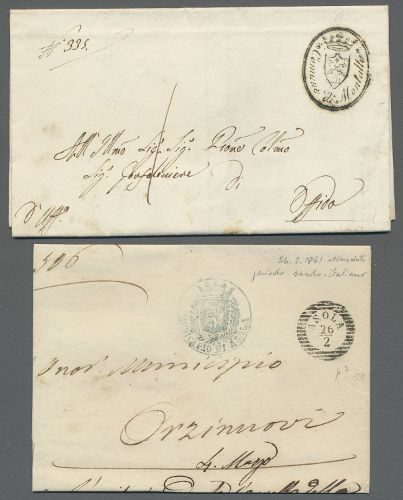 N.° 335.
Comune di Montalto
All' Illmo Sig. Sig. Prōne Colmo
Sig. Gonfaloniere di
Offida
D'Uff.°
506
26.2.1861 ultima data
periodo sardo-italiano
MUNICIPIO DI ASOLA
ASOLA
26
2
p. 7
Inor. Municipio
Orzinuovi